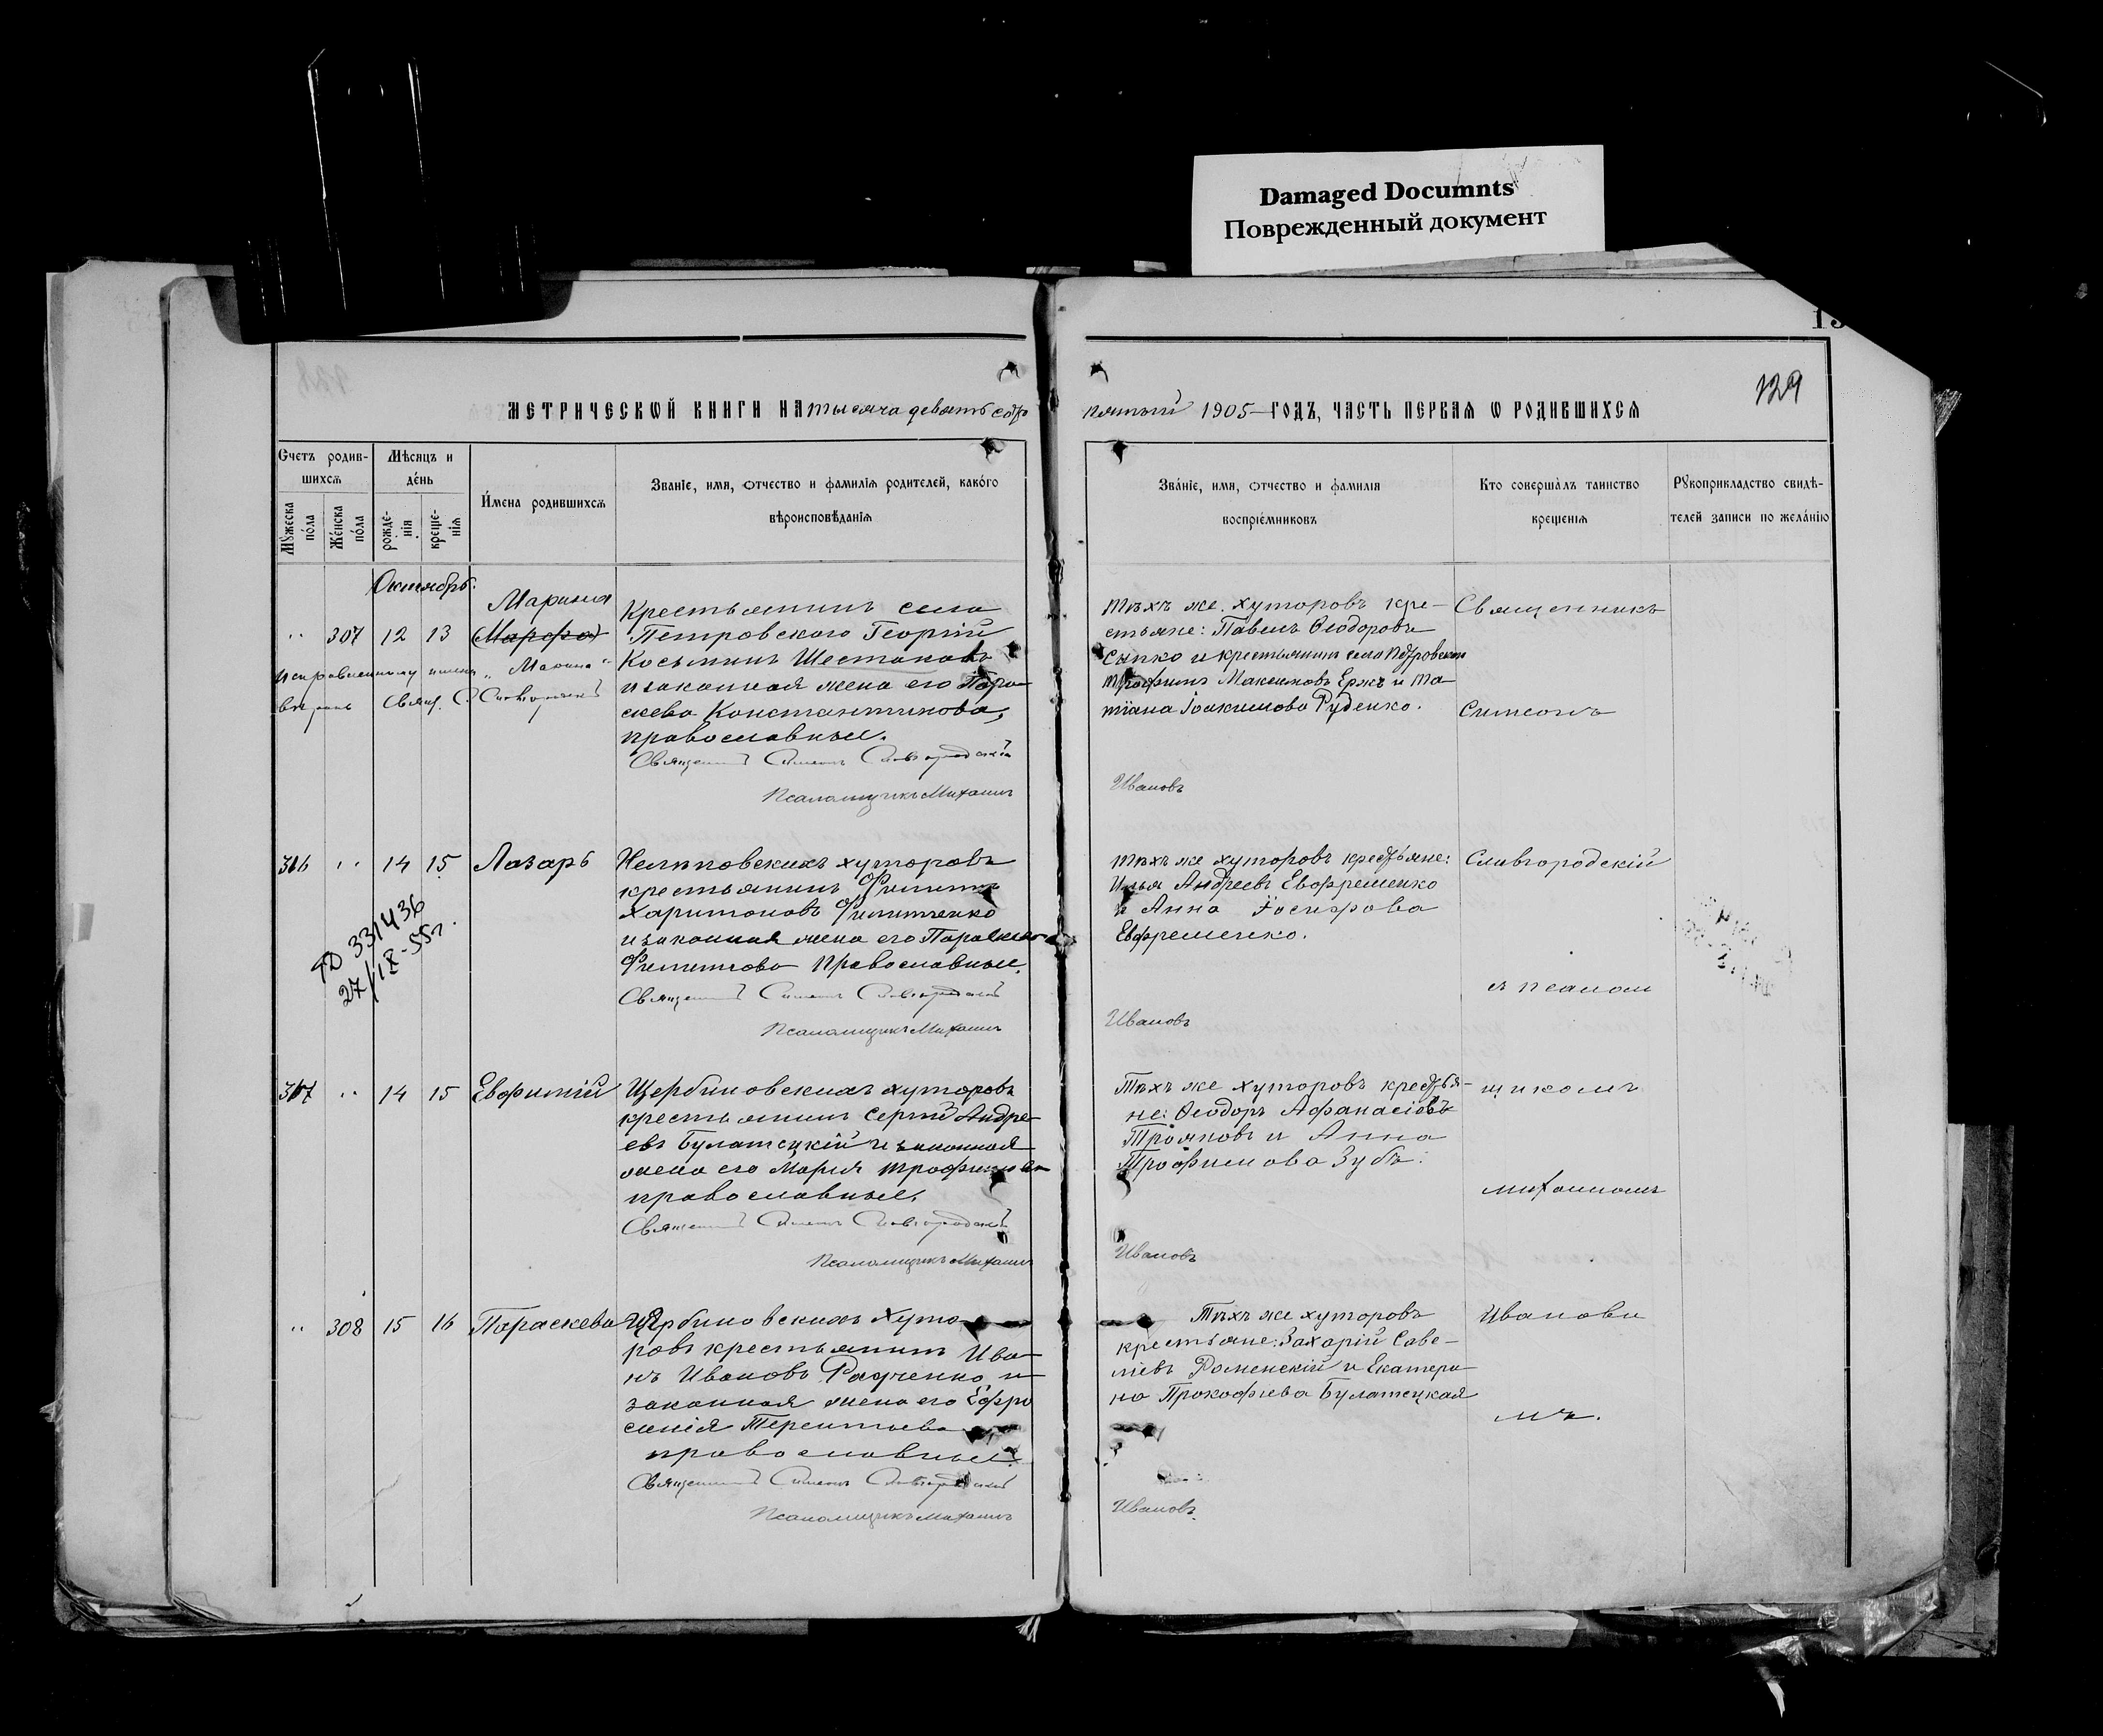 Damaged Documnts
Поврежденный документ
129
МЕТРИЧЕСКОЙ КНИГИ НА тысяча девятьсотъ
пятый 1905 ГОДЪ, ЧАСТЬ ПЕРВАѦ Ѡ РОДИВШИХСѦ
Счетъ родив-
шихсѧ
Мужеска
пола
Женска
пола
Мѣсяцъ и
день
рожде-
нія
креще-
нія
Имена родившихсѧ
Званіе, имя, отчество и фамилія родителей, какого
вѣроисповѣданія
Званіе, имя, отчество и фамилія
воспріемниковъ
Кто совершалъ таинство
крещенія
Рукоприкладство свидѣ-
телей записи по желанію
Октябрь.
" 307 12 13
Марина
(Марфа)
Исправленному имени „Марина"
вѣрить Свящ. С. Славгородскій
Крестьянинъ села
Петровского Георгій
Косьминъ Шестаковъ
и законная жена его Пара-
скева Константинова,
православные.
Священникъ Симеонъ Славгородскій
Псаломщикъ Михаилъ
Тѣхъ же хуторовъ кре-
стьяне: Павелъ Ѳеодоровъ
Сыпко и крестьянинъ села Петровского
Трофимъ Максимовъ Ержъ и Та-
тіана Іоакимова Руденко.
Ивановъ
Священникъ
Симеонъ
316 " 14 15 Лазарь
ТД 331436
27/IX-55г.
хуторовъ
крестьянинъ Филиппъ
Харитоновъ Филипченко
и законная жена его Параскева
Филиппова православные.
Священникъ Симеонъ Славгородскій
Псаломщикъ Михаилъ
Тѣхъ же хуторовъ крестьяне:
Илья Андреевъ Евфременко
и Анна Іосифова
Евфременко.
Ивановъ
Славгородскій
съ псалом
317 " 14 15 Евфимій
Щербиновскихъ хуторовъ
крестьянинъ Сергій Андре-
евъ Булатецкій и законная
жена его Марія Трофимова
православные.
Священникъ Симеонъ Славгородскій
Псаломщикъ Михаилъ
Тѣхъ же хуторовъ крестья-
не: Ѳеодоръ Афанасіевъ
Трояновъ и Анна
Трофимова Зубъ.
Ивановъ
щикомъ
Михаиломъ
" 308 15 16 Параскева
Щербиновскихъ хуто-
ровъ крестьянинъ Ива-
нъ Ивановъ Радченко и
законная жена его Ефро
синія Терентьева
православные.
Священникъ Симеонъ Славгородскій
Псаломщикъ Михаилъ
Тѣхъ же хуторовъ
крестьяне: Захарій Саве-
ліевъ Роменскій и Екатери-
на Прокофіева Булатецкая
Ивановъ
Ивановы
мъ.